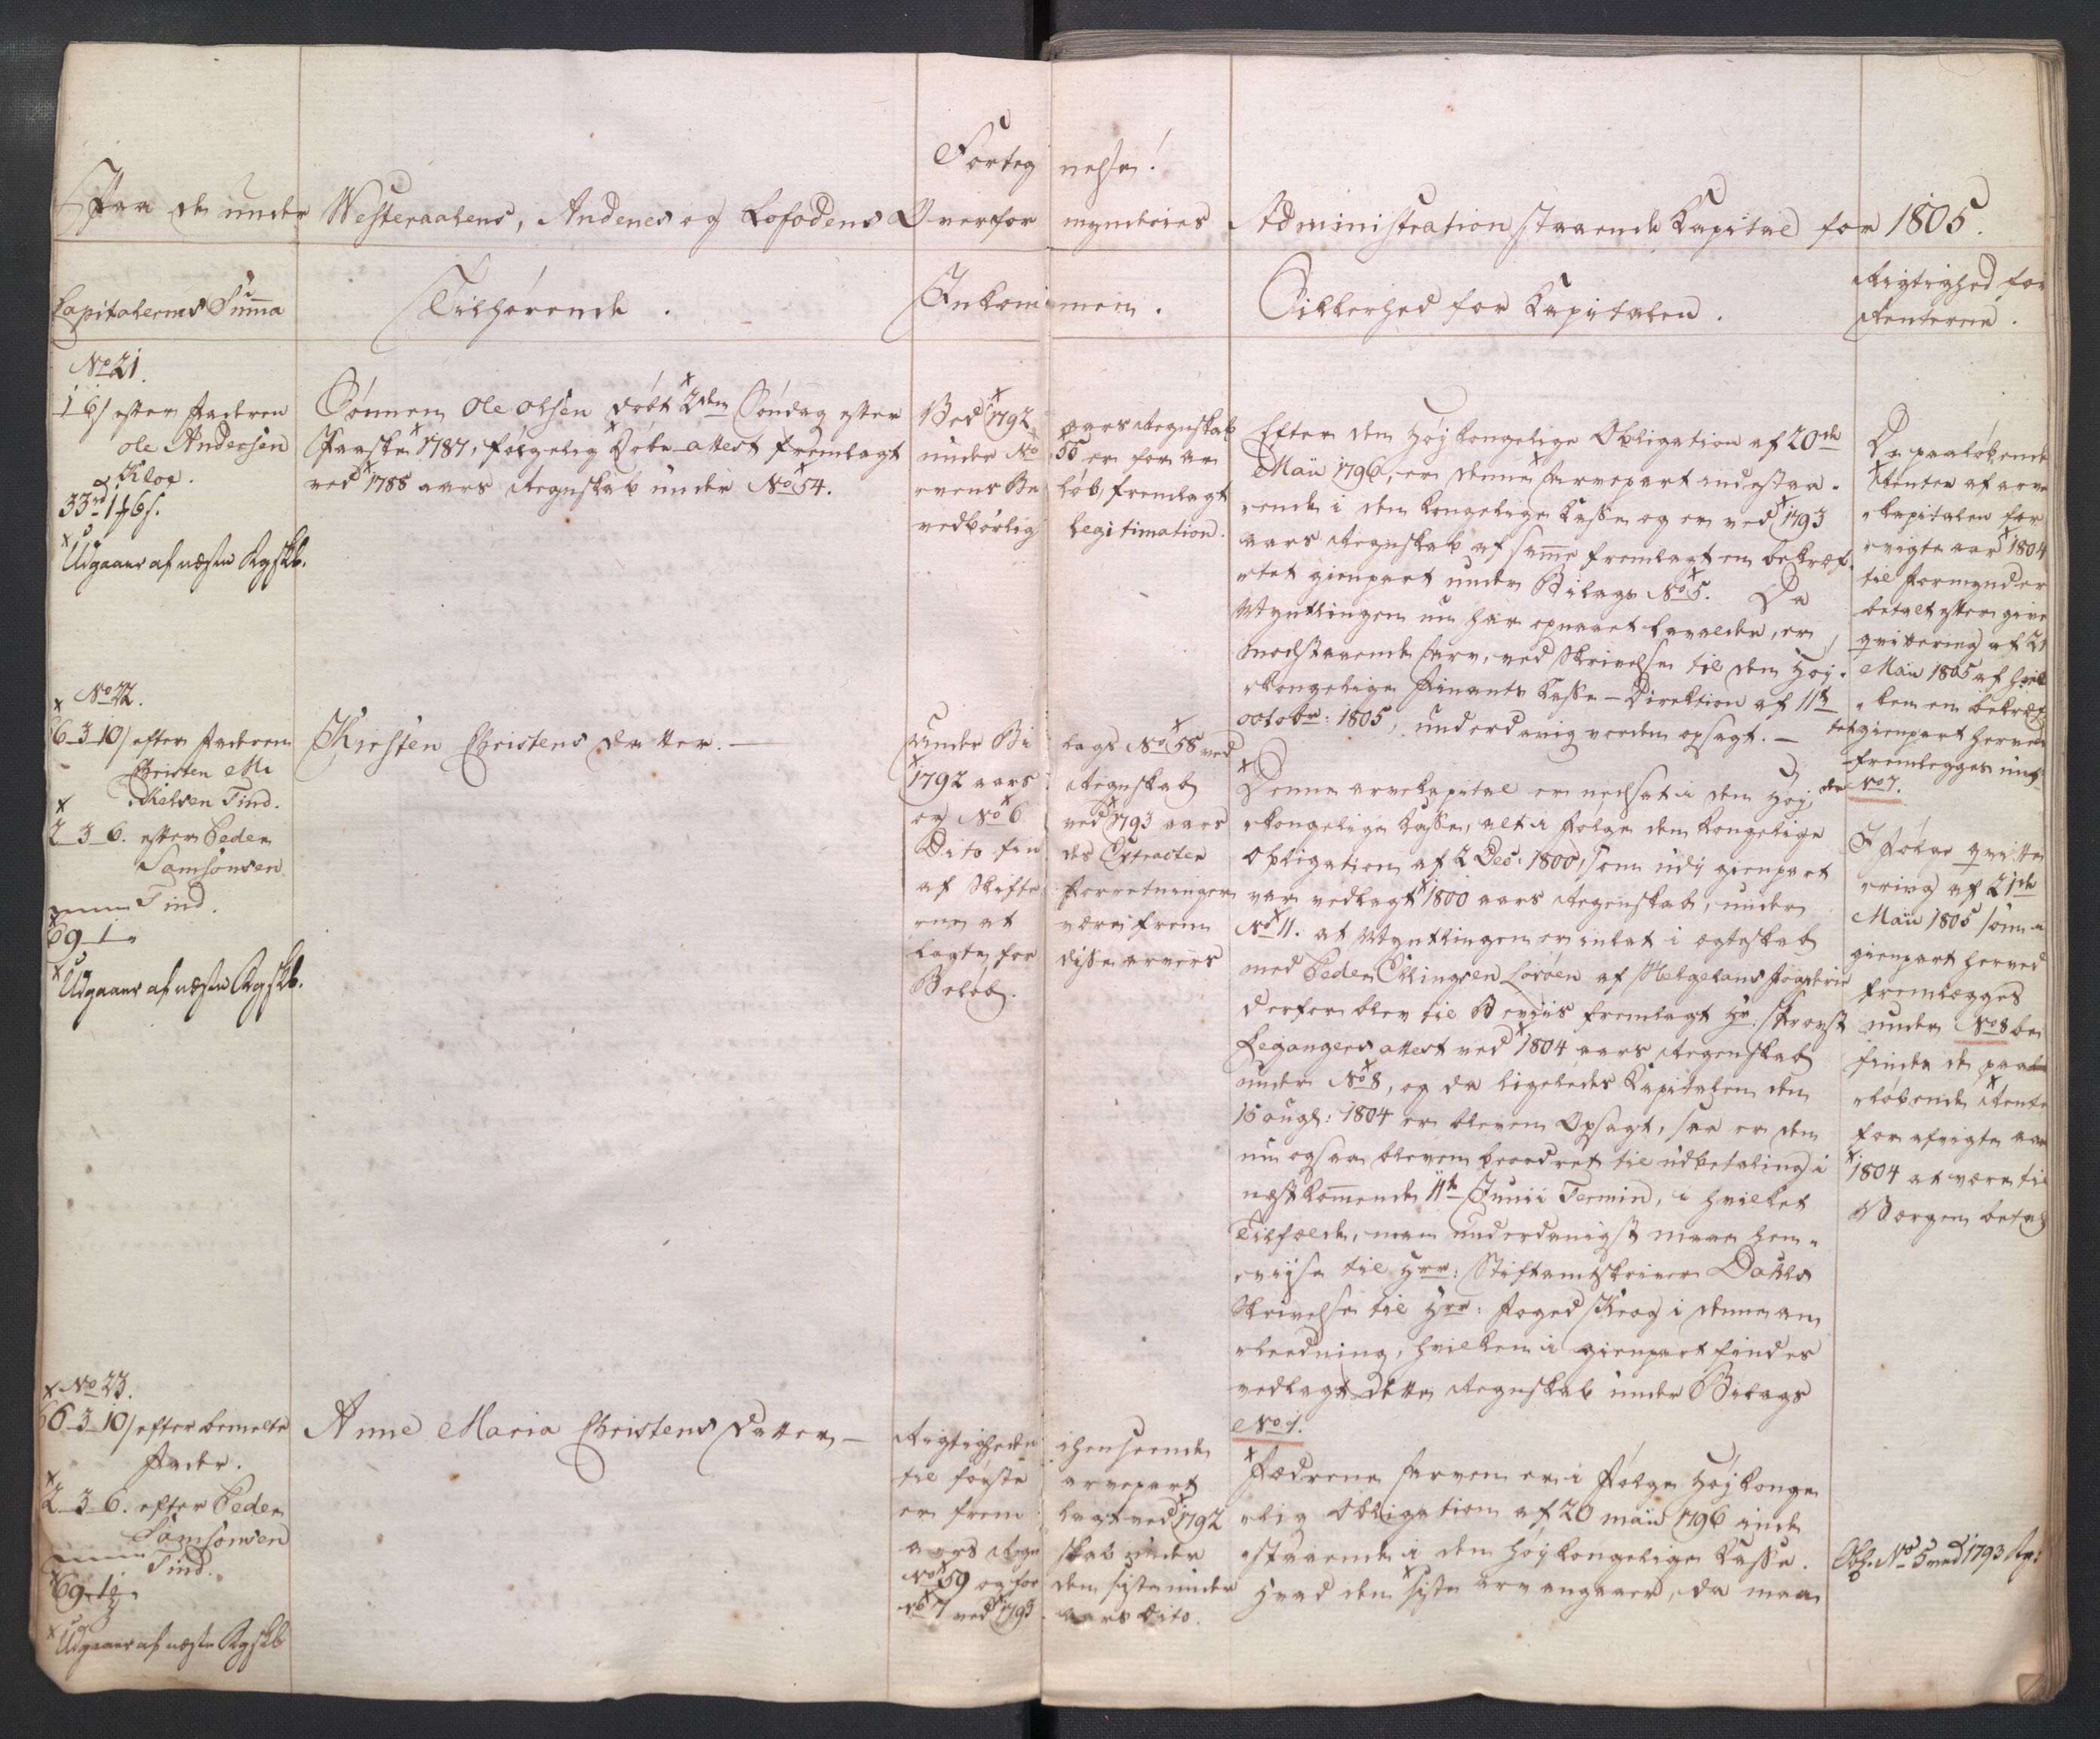 Forteg nelse!
Paa de under Westeraalens, Andenes og Lofodens Overfor mynderies Administration staaende Kapital for 1805.
Capitalernes Summa
Tilhørende.
Inkom men.
Sikkerhed for Kapitalen.
Rigtighed for
Renterne.
No 21.
efter Faderen
Ole Andersen
Klog.
33rd 1 ƶ 6 s.
Udgaaer af næste Rgskb.
Sønnen Ole Olsen døbt 2den Søndag efter
Paaske 1787, følgelig Døbe-attest fremlagt
ved 1788 aars Regnskab under No 54.
Ved 1792
under No
vens Be
vedbørlig
aars Regnskab
55 er for ar
løb, fremlagt
Legitimation.
Efter den Høj kongelige Obligation af 20de
Maii 1796, er denne Arvepart indestaa-
ende i den kongelige Kasse og er ved 1793
aars Regnskab af samme fremlagt en bekræf-
tet gienpart under Bilags No 5. Da
Myntlingen nu har opnaaet Lavalder, er
modstaaende Arv, ved Skrivelse til den Høj-
kongelige Finants Kasse-Direktion af 11te
octobr: 1805, underdanig vorden opsagt. —
De paaløbende
Renter af arve
Kapitalen for
vigte aar 1804
til Formynder
betalt efter give
qvittering af 21
Maii 1805 af hvil
ken en bekræf
tet gienpart herved
fremlegges und
der No 7.
No 22.
66-3-10/ efter Faderen
Christen Mi
kelsen Tind.
2-3-6. efter Peder
Samsonsen
Tind.
69-1-
Udgaaer af næste Rgskb.
Kirsten Christens Datter. —
Under Bi
1792 aars
og No 6
Dito fin
af Skifte
erne at
lagte for
Beløb.
lags No 58 ved
Regnskab
ved 1793 aars
des Extracter
Forretninger
være frem
disse arvers
Denne arvekapital er nedsat i den Høj
kongelige Kasse, alt i Følge den kongelige
Obligation af 2 Dec: 1800, som udi gienpart
var vedlagt 1800 aars Regnskab, under
No 11. at Myntlingen er indlat i egteskab
med Peder Ellingsen Lorøen af Helgelans Fogderie
derfor blev til Beviis fremlagt Hr. Provst
Leganger's attest ved 1804 aars Regnskab
under No 8, og da ligeledes Kapitalen den
15 aug: 1804 er bleven Opsagt, saa er den
nu ogsaa bleven beordret til udbetaling i
nestkommende 11te Junii Termin, i hvilket
Tilfælde, man underdanigst maae hen-
viise til Hrr: Stiftamtskriver Dahls
Skrivelse til Hrr: Foged Krog i denne an
ledning, hvilken i gienpart findes
vedlagt dette Regnskab under Bilags
No 1.
I Følge qvitte
ring af 21de
Maii 1805 som i
gienpart herved
fremlægges
under No 8 be
findes de paa
løbende Rente
for afvigte aar
1804 at være til
Værgen betal
No 23.
66-3-10/ efter bemelte
Fader.
2-3-6. efter Peder
Samsonsen
Tind.
69-1-
Udgaaer af næste Rgskb
Anne Maria Christens Datter —
Rigtigheden
til første
er frem
aars Regn
No 59 og for
No 7 ved 1793
ihenseende
arvepart
lagt ved 1792
skab under
den siste under
aars Dito.
Fædrene Arven er i Følge Højkonge
lig Obligation af 20 maii 1796 inde
staaende i den højkongelige Kasse.
Hvad den siste arv angaaer, da maa
Obl. No 5 ved 1793 Rg: